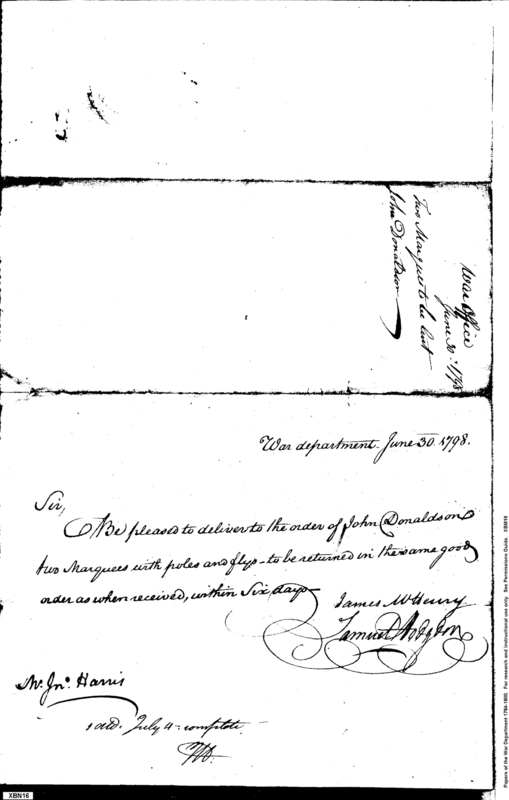 War Office
June 30th 1798
Two Marquees to be lent
John Donaldson
War department June 30. 1798.
Sir,
Be pleased to deliver to the order of John Donaldson
two Marquees with poles and flys - to be returned in the same good
order as when received, within Six days -
James McHenry
Samuel Hodgdon
Mr. Jno. Harris
July 4 - complete
XBN16
Papers of the War Department 1784-1800. For research and instructional use only. See Permissions Guide. XBN16